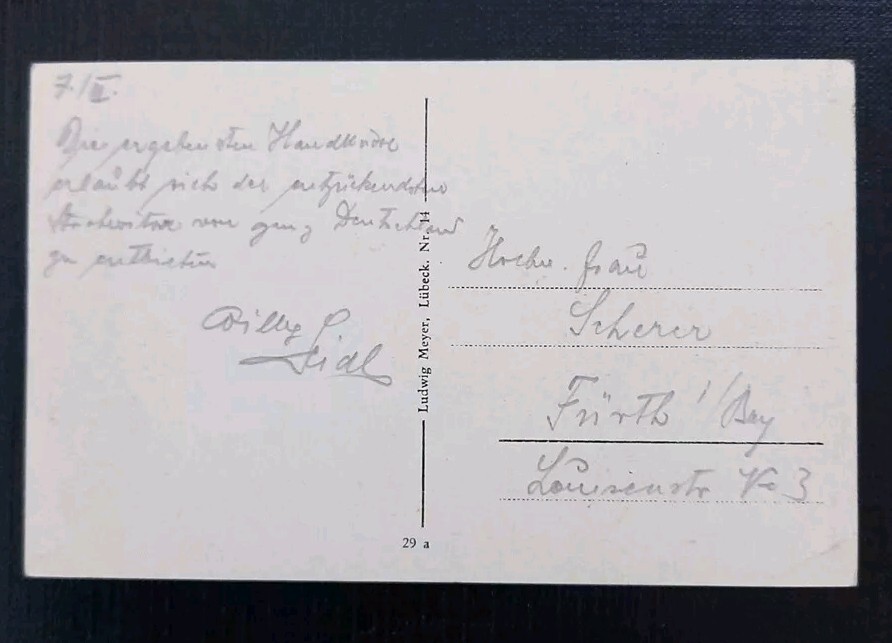 7./II.
Die ergebensten Handküsse
erlaubt sich der entzückendsten
Strohwitwe von ganz Deutschland
zu entbieten
Willy
Seidl
Ludwig Meyer, Lübeck. Nr. 14
29 a
Hochw. Frau
Scherer
Fürth i/Bay
Louisenstr No 3